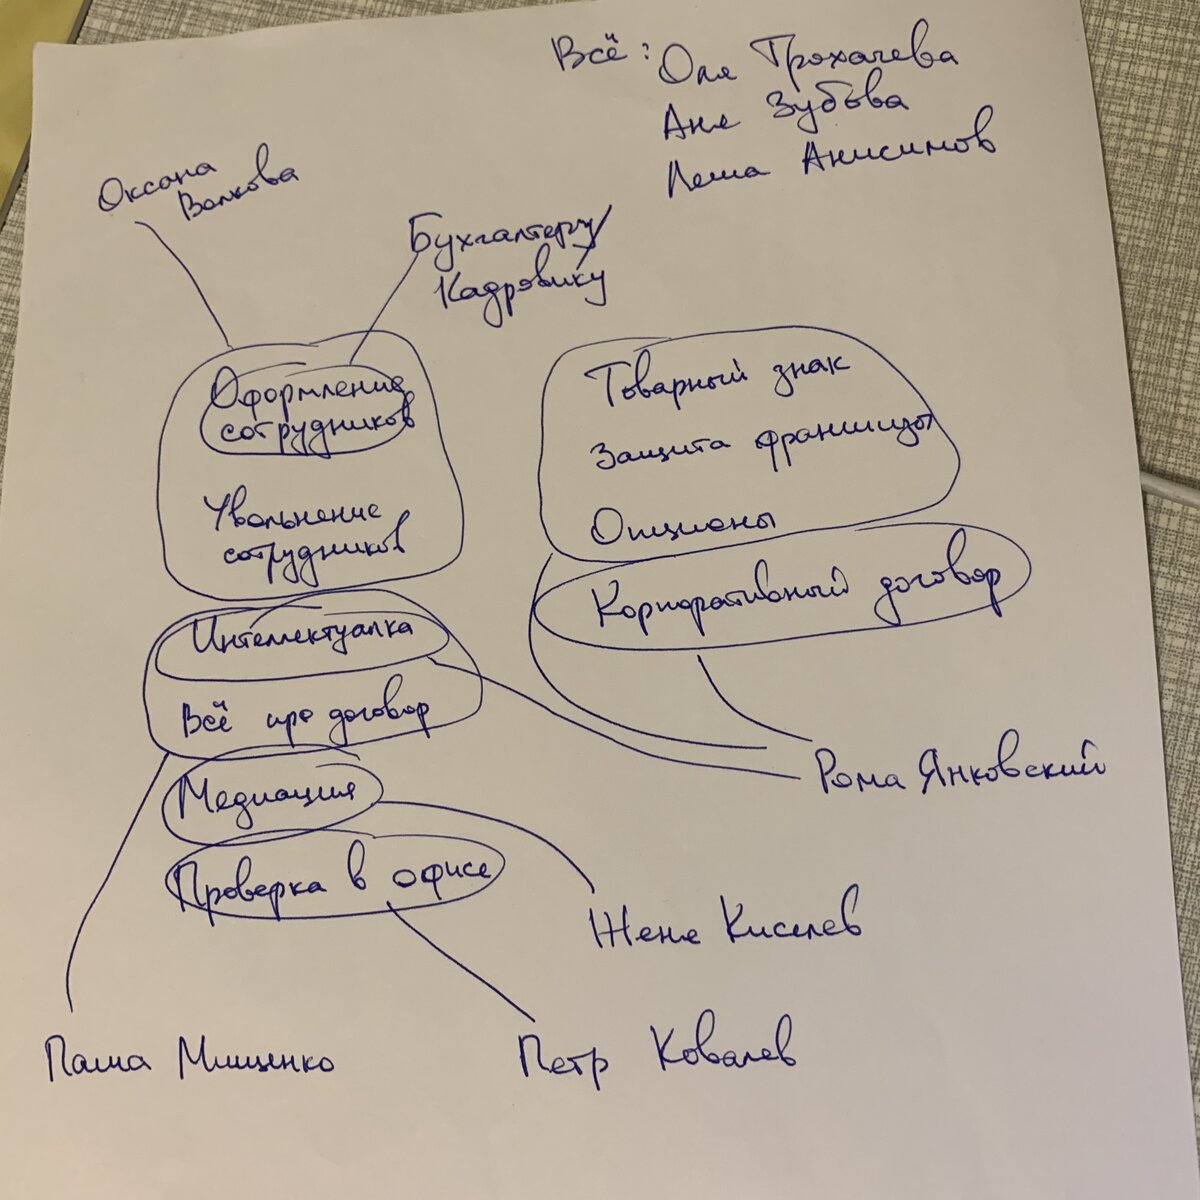 Всё: Оля Трохачева
Аня Зубова
Леша Анисимов
Оксана
Волкова
Бухгалтеру/
Кадровику
Оформление
сотрудников
Увольнение
сотрудников
Интеллектуалка
Всё про договор
Медиация
Проверка в офисе
Товарный знак
Защита франшизы
Опционы
Корпоративный договор
Рома Янковский
Женя Киселев
Паша Мищенко
Петр Ковалев